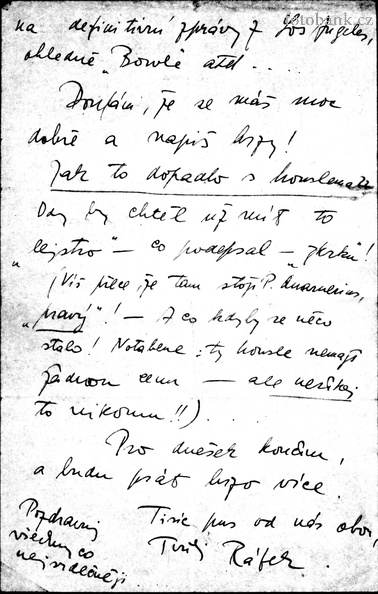 fotobank.cz
na definitivní zprávy z Los Angeles,
ohledně „Bowlé atd...
Doufám, že se máš moc
dobře a napiš brzy!
Jak to dopadlo s houslema?
On by chtěl už mít to
„lejstro" – co podepsal – „zkrku!
(Víš přece, že tam stojí P. Guarnerius,
„pravý"! – A co kdyby se něco
stalo! Notabene: ty housle nemají
žádnou cenu – ale neříkej
to nikomu!!)
Pro dnešek končím,
a budu psát brzo více.
Tisíc pus od nás obou,
Tvůj Ráfek.
Pozdravuj
všechny co
nejsrdečněji